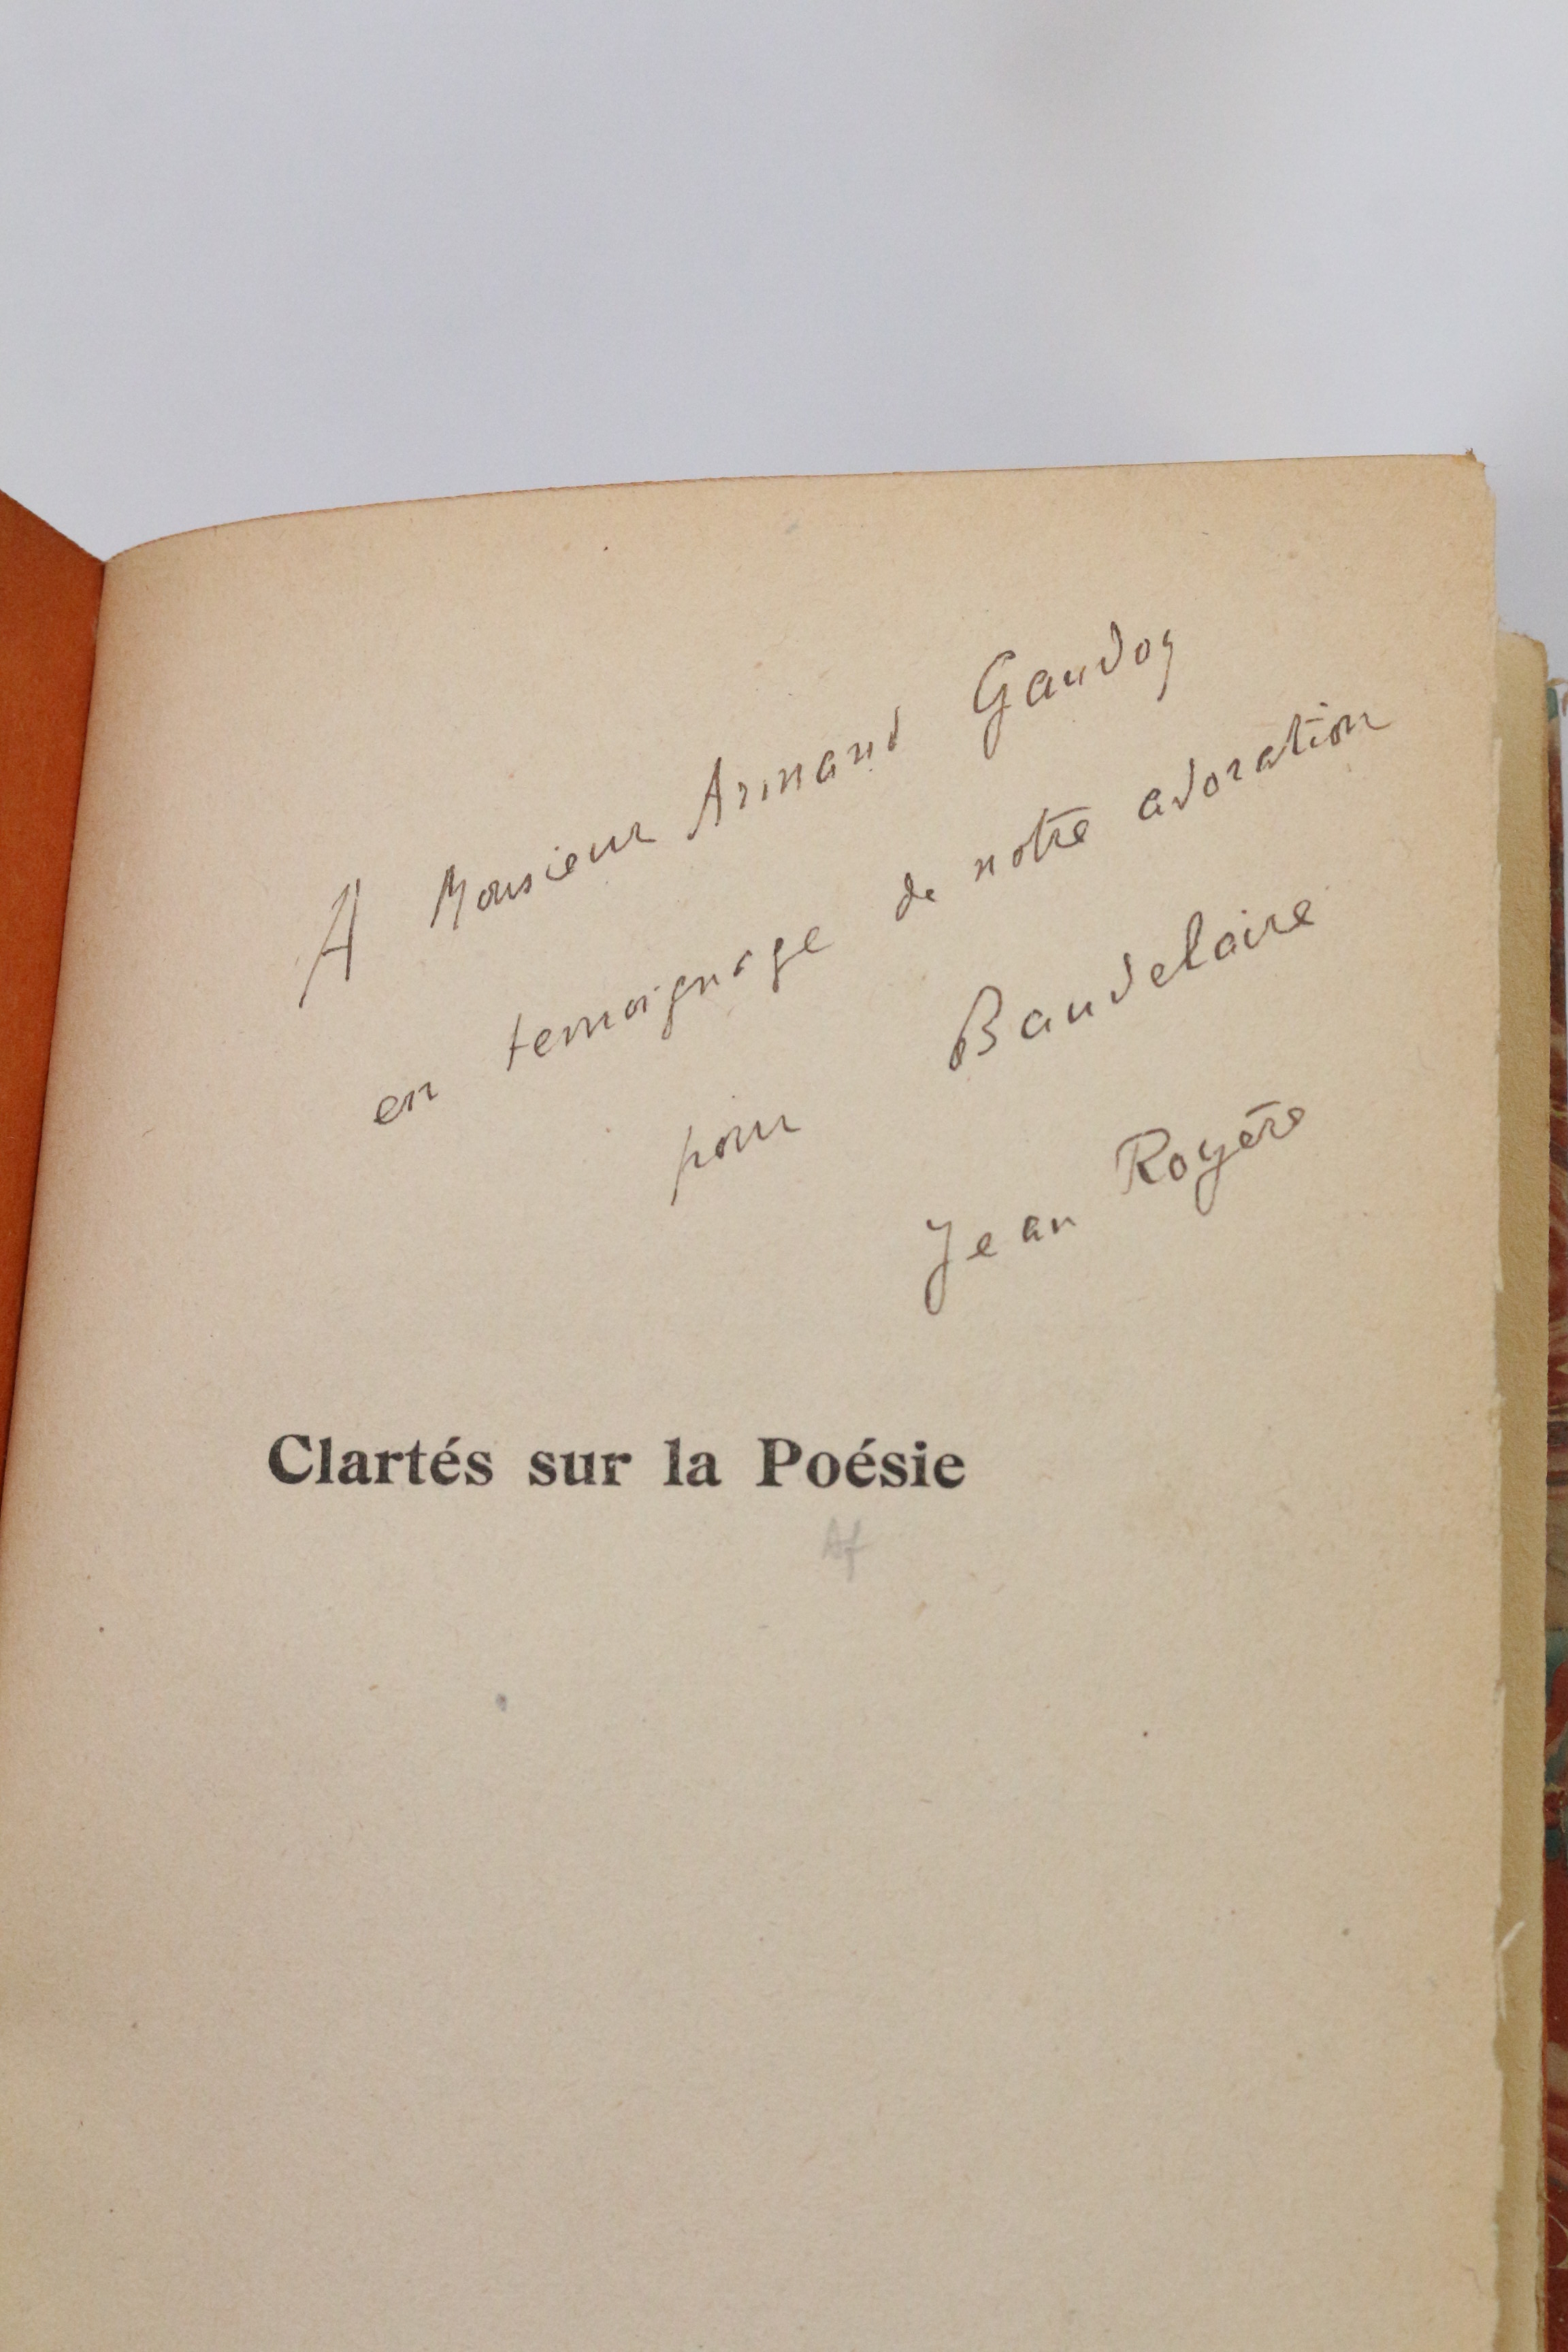 A Monsieur Armand Gaudoy
en temoignage de notre adoration
pour Baudelaire
Jean Royère
Clartés sur la Poésie
Af